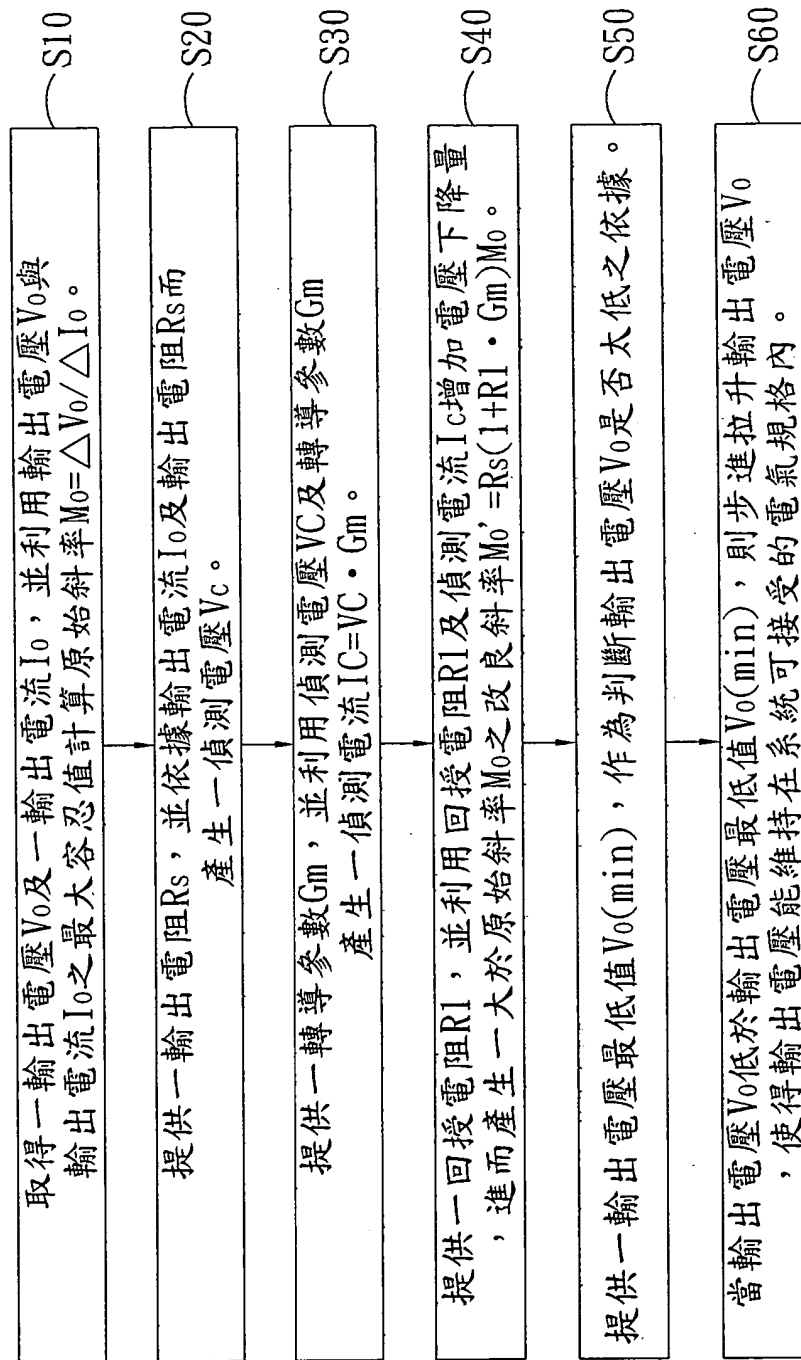 取得一輸出電壓Vo及一輸出電流Io，並利用輸出電壓Vo與
輸出電流Io之最大容忍值計算原始斜率Mo=△Vo/△Io。
S10
提供一輸出電阻Rs，並依據輸出電流Io及輸出電阻Rs而
產生一偵測電壓Vc。
S20
提供一轉導參數Gm，並利用偵測電壓VC及轉導參數Gm
產生一偵測電流IC=VC·Gm。
S30
提供一回授電阻R1，並利用回授電阻R1及偵測電流Ic增加電壓下降量
，進而產生一大於原始斜率Mo之改良斜率Mo'=Rs(1+R1·Gm)Mo。
S40
提供一輸出電壓最低值Vo(min)，作為判斷輸出電壓Vo是否太低之依據。
S50
當輸出電壓Vo低於輸出電壓最低值Vo(min)，則步進拉升輸出電壓Vo
，使得輸出電壓能維持在系統可接受的電氣規格內。
S60